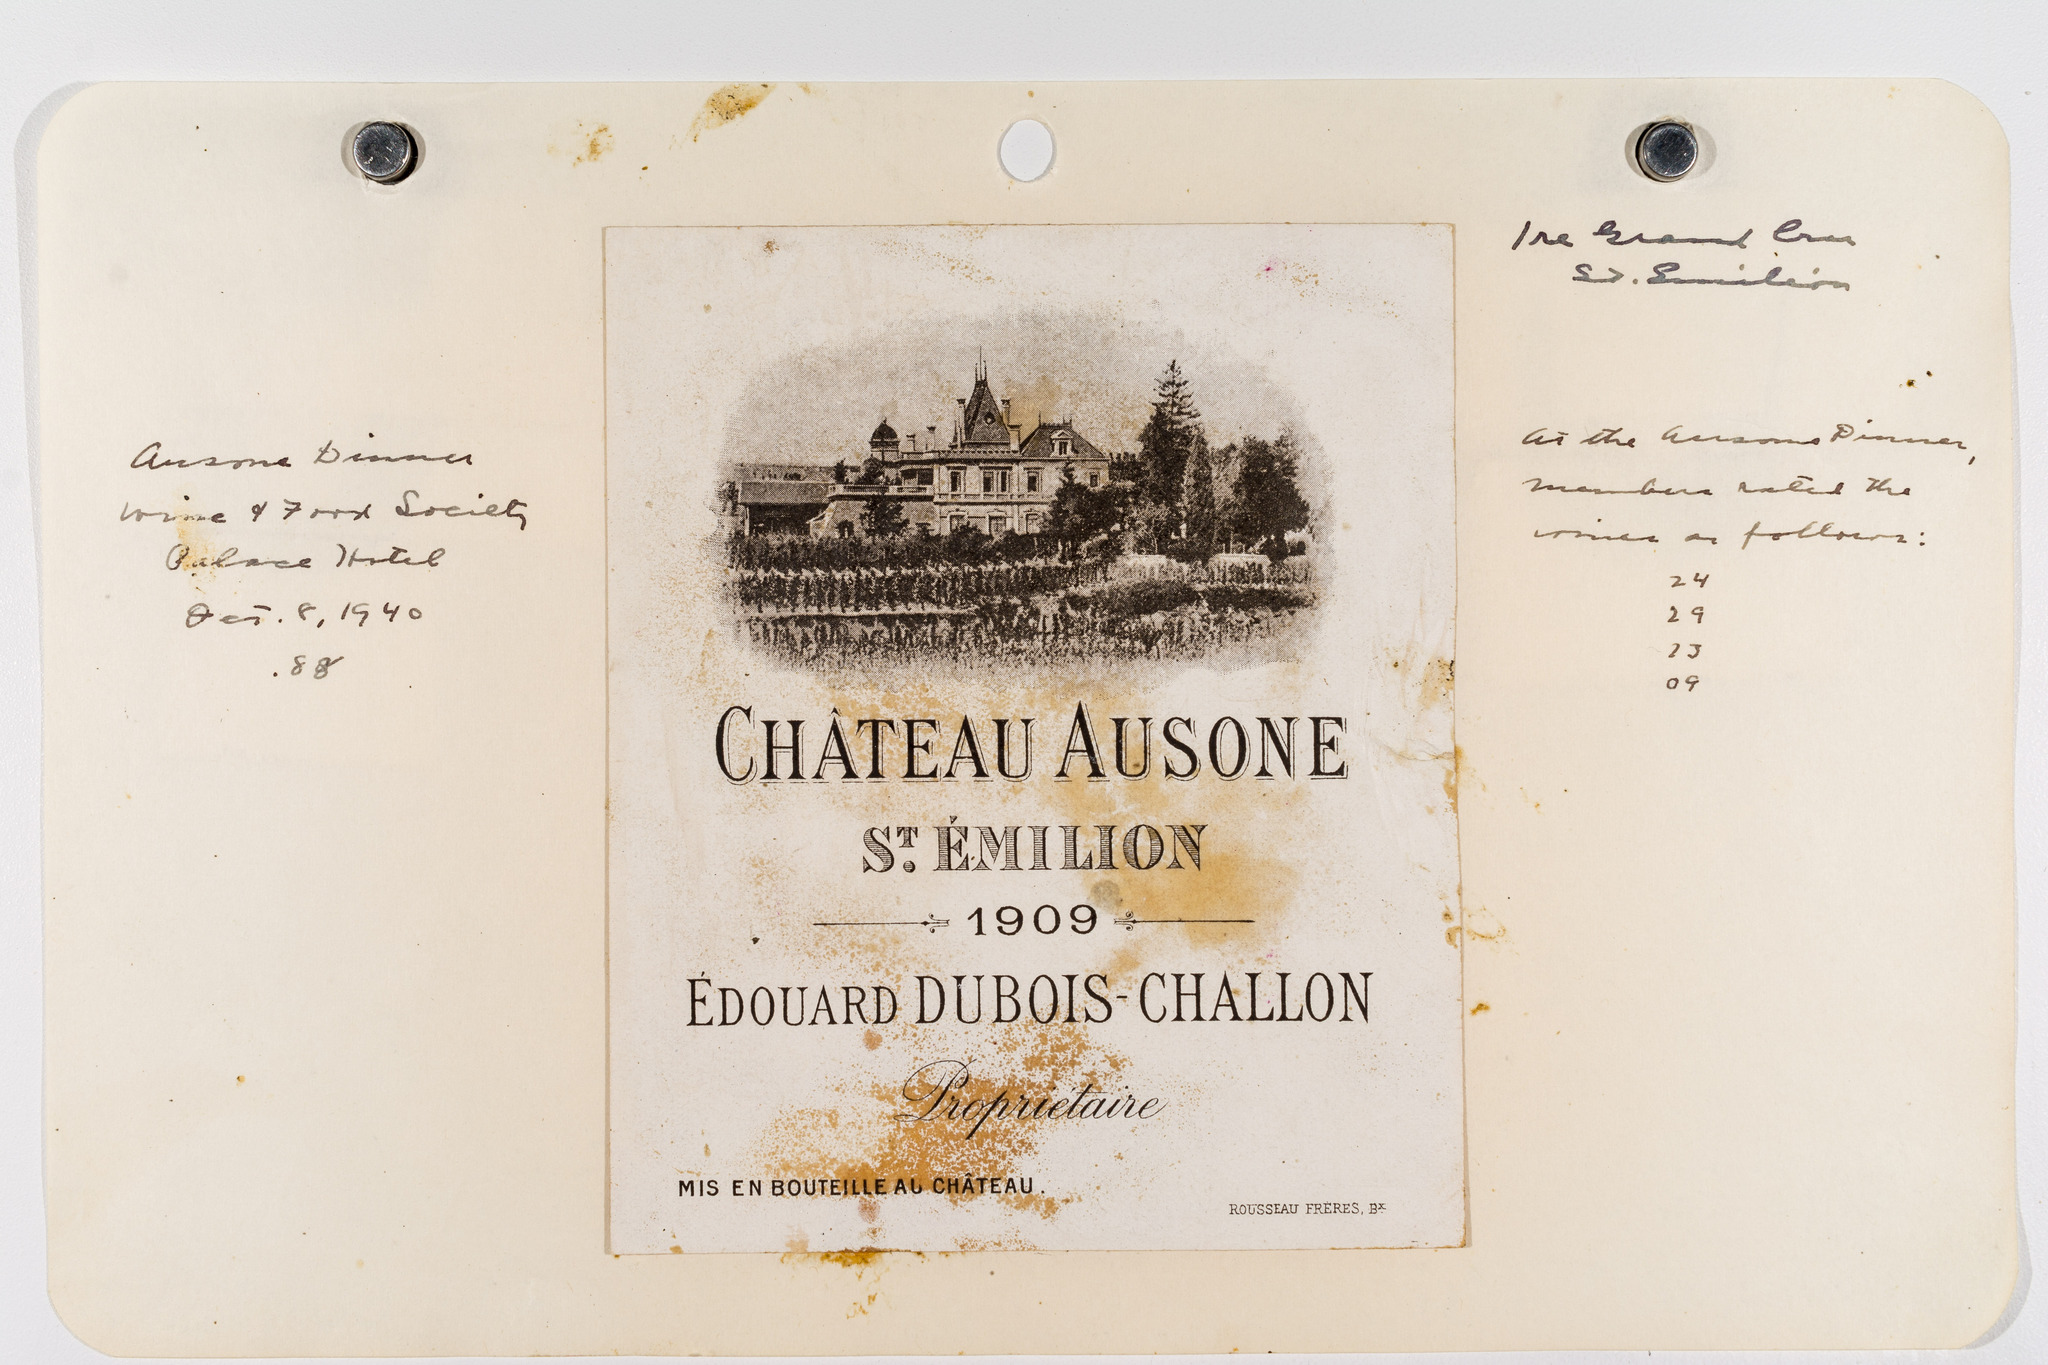 Ausone Dinner
Wine & Food Society
Palace Hotel
Oct. 8, 1940
.88
CHÂTEAU AUSONE
ST. ÉMILION
1909
ÉDOUARD DUBOIS-CHALLON
Propriétaire
MIS EN BOUTEILLE AU CHÂTEAU.
ROUSSEAU FRÈRES, Bx.
1re Grand Cru
St. Emilion
At the Ausone Dinner,
members rated the
wines as follows:
24
29
23
09